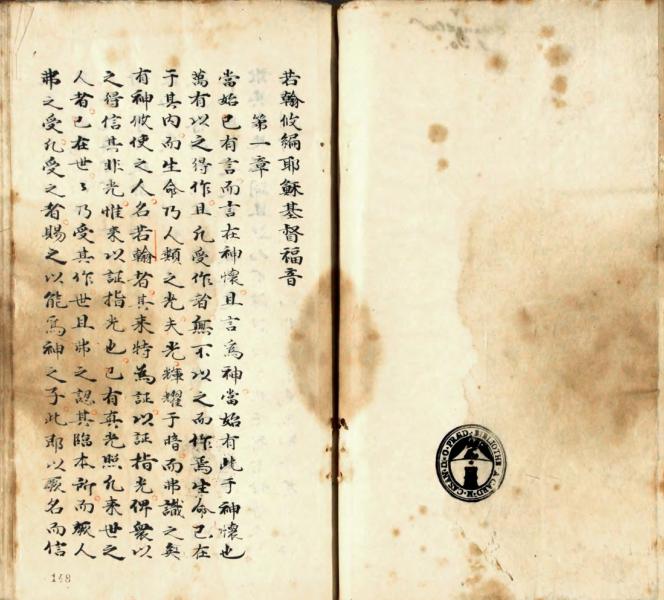 若翰攸編耶穌基督福音
第一章
當始已有言而言在神懷且言爲神當始有此于神懷也
萬有以之得作且凡受作者無不以之而作焉生命已在
于其内而生命乃人類之光夫光輝耀于暗而弗識之矣
有神攸使之人名若翰者其来特為証以証指光俾衆以
之得信其非光惟来以証指光也已有真光照凡来世之
人者已在世〻乃受其作世且弗之認其臨本所而厥人
弗之受凡受之者賜之以能爲神之子此即以厥名而信
148
BIBLIOTHECA
CARD
CASANAT
O. PRÆD